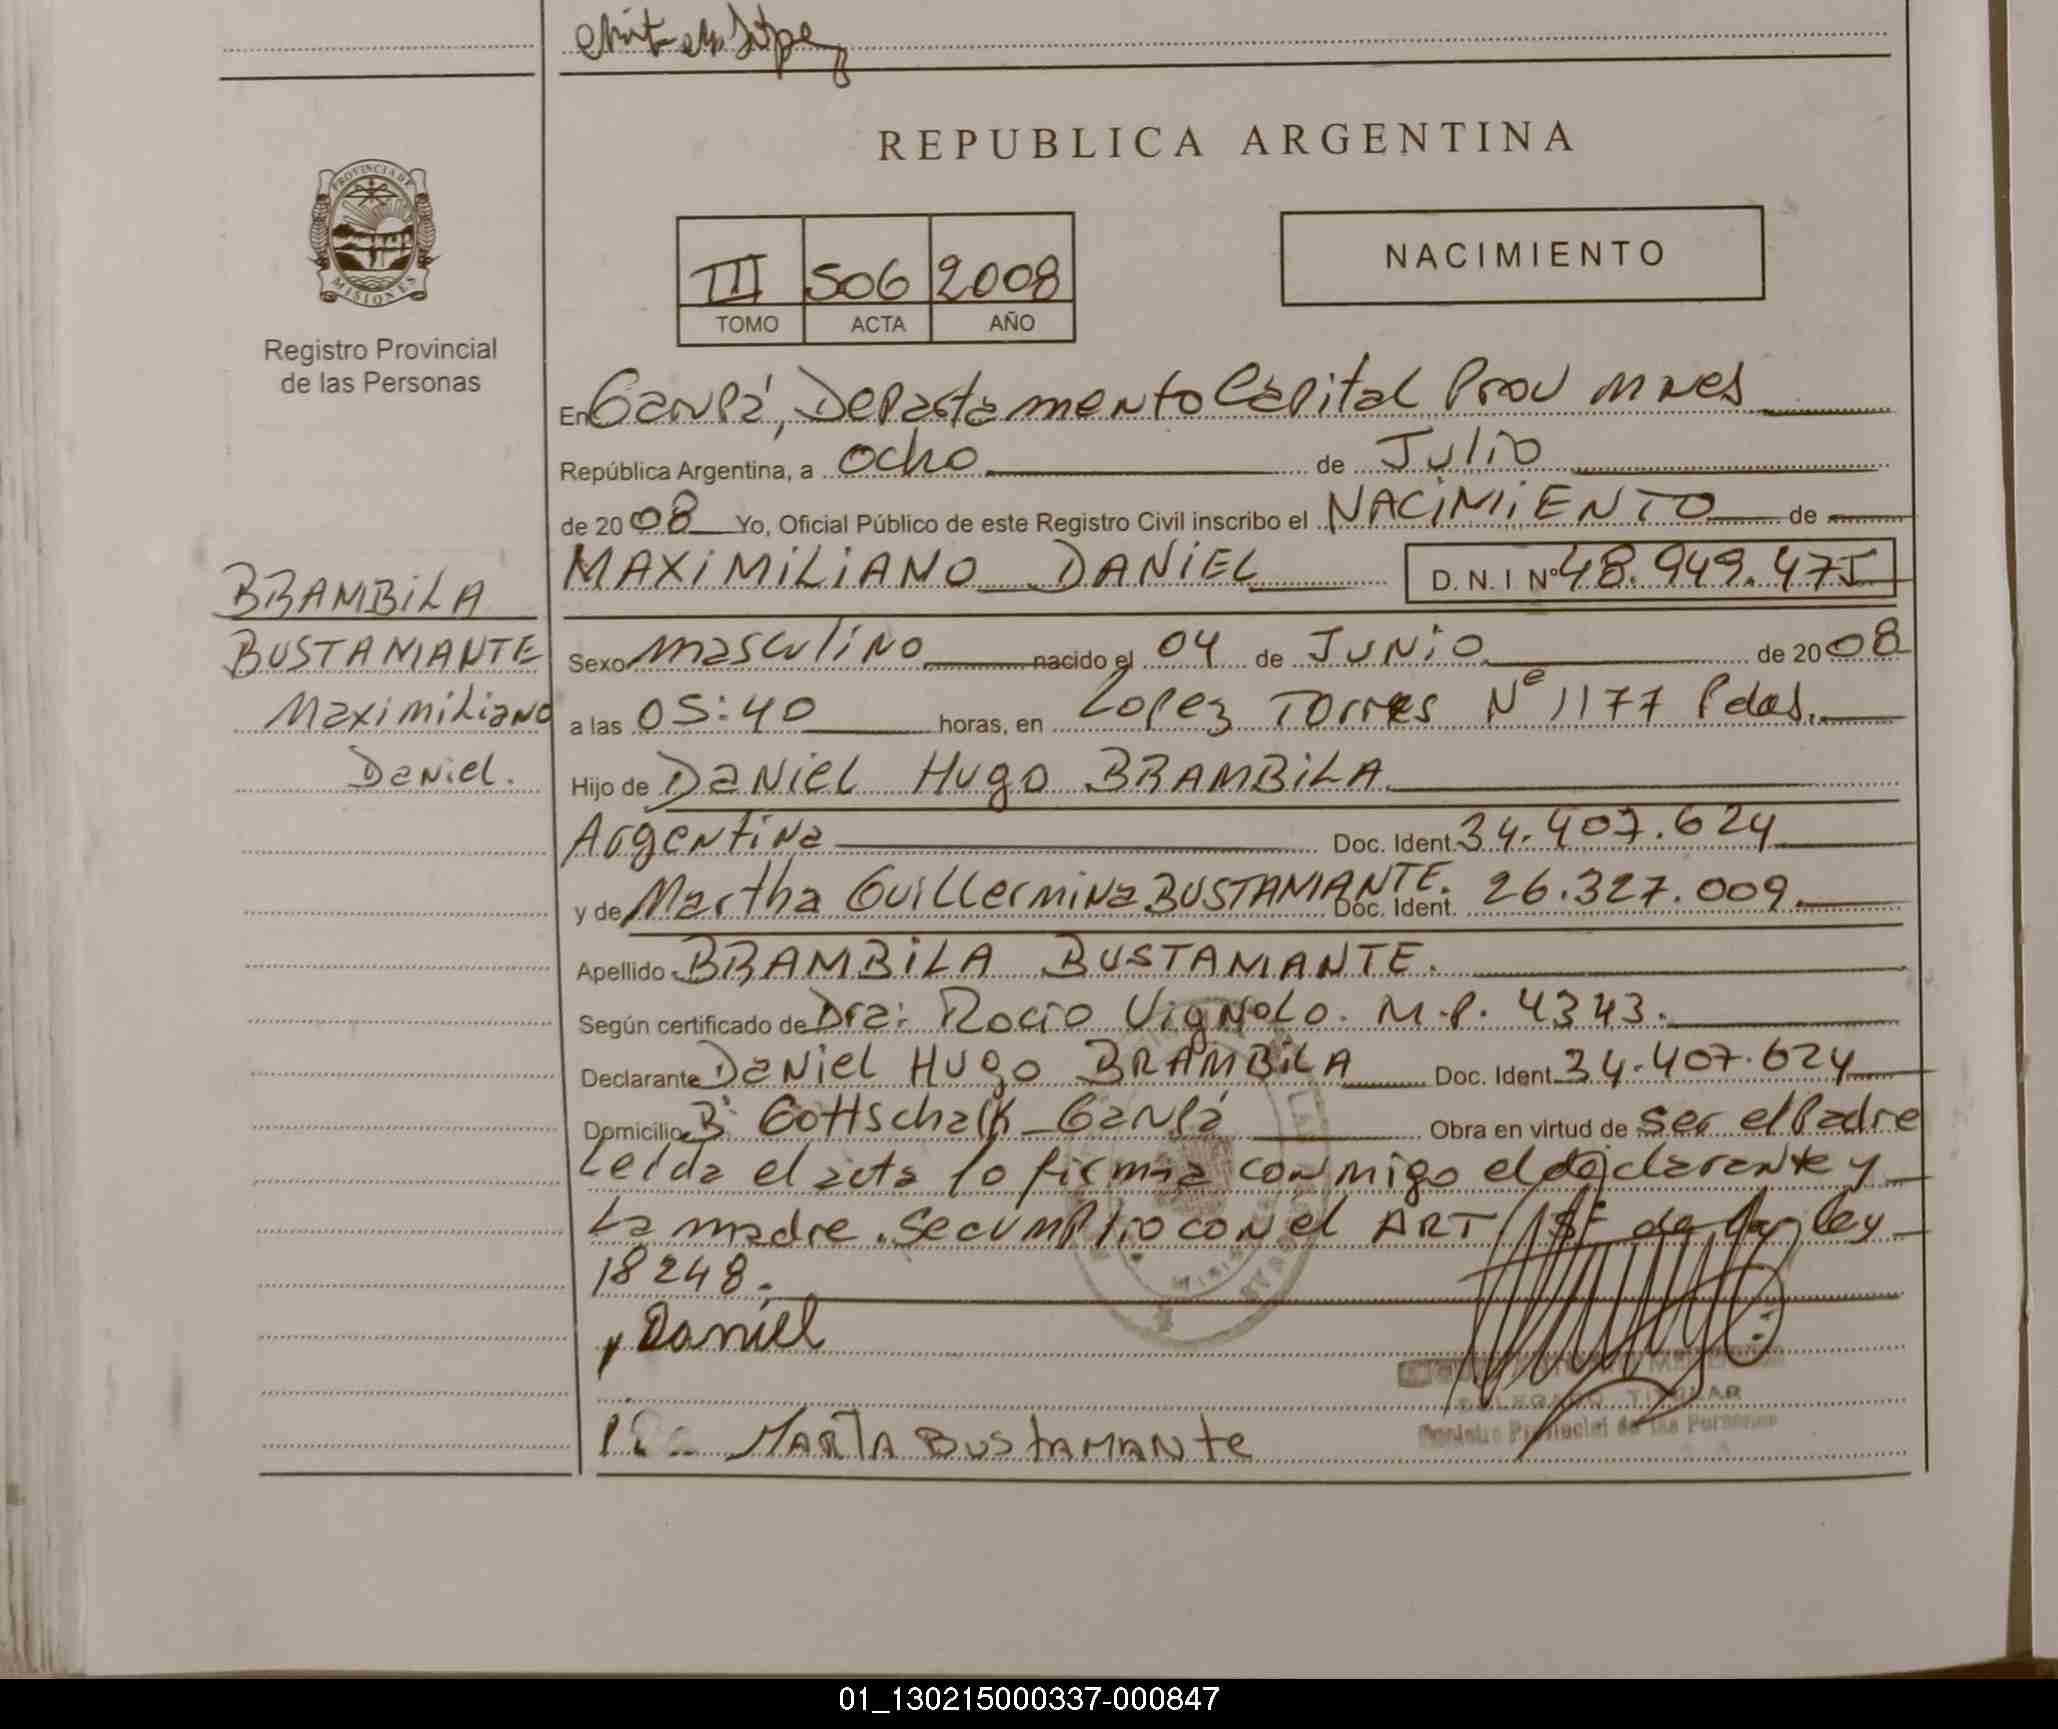 REPUBLICA ARGENTINA
PROVINCIA DE
MISIONES
Registro Provincial
de las Personas
III 506 2008
TOMO ACTA AÑO
NACIMIENTO
En Garupá, Departamento Capital Prov Mnes
República Argentina, a ocho de Julio
de 2008 Yo, Oficial Público de este Registro Civil inscribo el NACIMIENTO de
MAXIMILIANO DANIEL D.N.I Nº 48.949.475
BRAMBILA
BUSTAMANTE
Maximiliano
Daniel.
Sexo masculino nacido el 04 de JUNIO de 2008
a las 05:40 horas, en Lopez Torres Nº 1177 Pdas.
Hijo de Daniel Hugo BRAMBILA
Argentina Doc. Ident. 34.407.624
y de Martha Guillermina BUSTAMANTE. Doc. Ident. 26.327.009.
Apellido BRAMBILA BUSTAMANTE.
Según certificado de Dra: Rocio Vignolo. M.P. 4343.
Declarante Daniel Hugo BRAMBILA Doc. Ident. 34.407.624
Domicilio Bº Gottschalk - Garupá Obra en virtud de ser el Padre
Leida el acta lo firma conmigo el declarante y
La madre. Se cumplio con el ART de ley
18248.
Daniel
MARTA BUSTAMANTE
TITULAR
Registro Provincial de las Personas
01_130215000337-000847